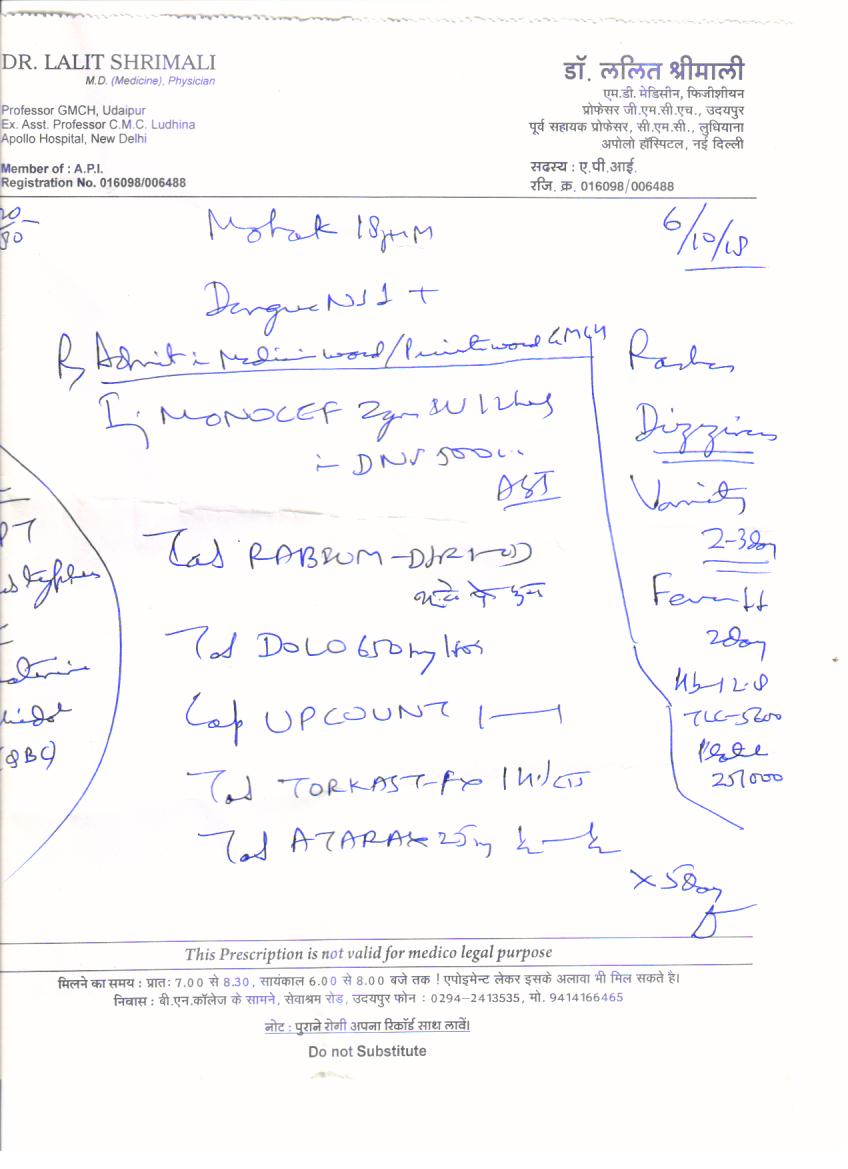 DR. LALIT SHRIMALI
M.D. (Medicine), Physician
Professor GMCH, Udaipur
Ex. Asst. Professor C.M.C. Ludhina
Apollo Hospital, New Delhi
Member of : A.P.I.
Registration No. 016098/006488
डॉ. ललित श्रीमाली
एम.डी. मेडिसीन, फिजीशीयन
प्रोफेसर जी.एम.सी.एच., उदयपुर
पूर्व सहायक प्रोफेसर, सी.एम.सी., लुधियाना
अपोलो हॉस्पिटल, नई दिल्ली
सदस्य : ए.पी.आई.
रजि. क्र. 016098/006488
Mohak 18yr M
6/10/18
Dengue NS1 +
Admit Medicine ward/Private ward GMCH
Inj MONOCEF 2gm IV 12
DNS 500
AST
Tab RABRUM-DSR 1 OD
Tab DOLO 650mg
Cap UPCOUNT 1—1
Tab TORKAST-FX 1
Tab ATARAX 25mg ½—½
x 5day
Rashes
Dizziness
Vomiting
2-3day
Fever
2day
Hb-12.8
TLC-5600
25/000
This Prescription is not valid for medico legal purpose
मिलने का समय : प्रातः 7.00 से 8.30, सायंकाल 6.00 से 8.00 बजे तक ! एपोइमेन्ट लेकर इसके अलावा भी मिल सकते है।
निवास : बी.एन.कॉलेज के सामने, सेवाश्रम रोड, उदयपुर फोन : 0294-2413535, मो. 9414166465
नोट : पुराने रोगी अपना रिकॉर्ड साथ लावें।
Do not Substitute